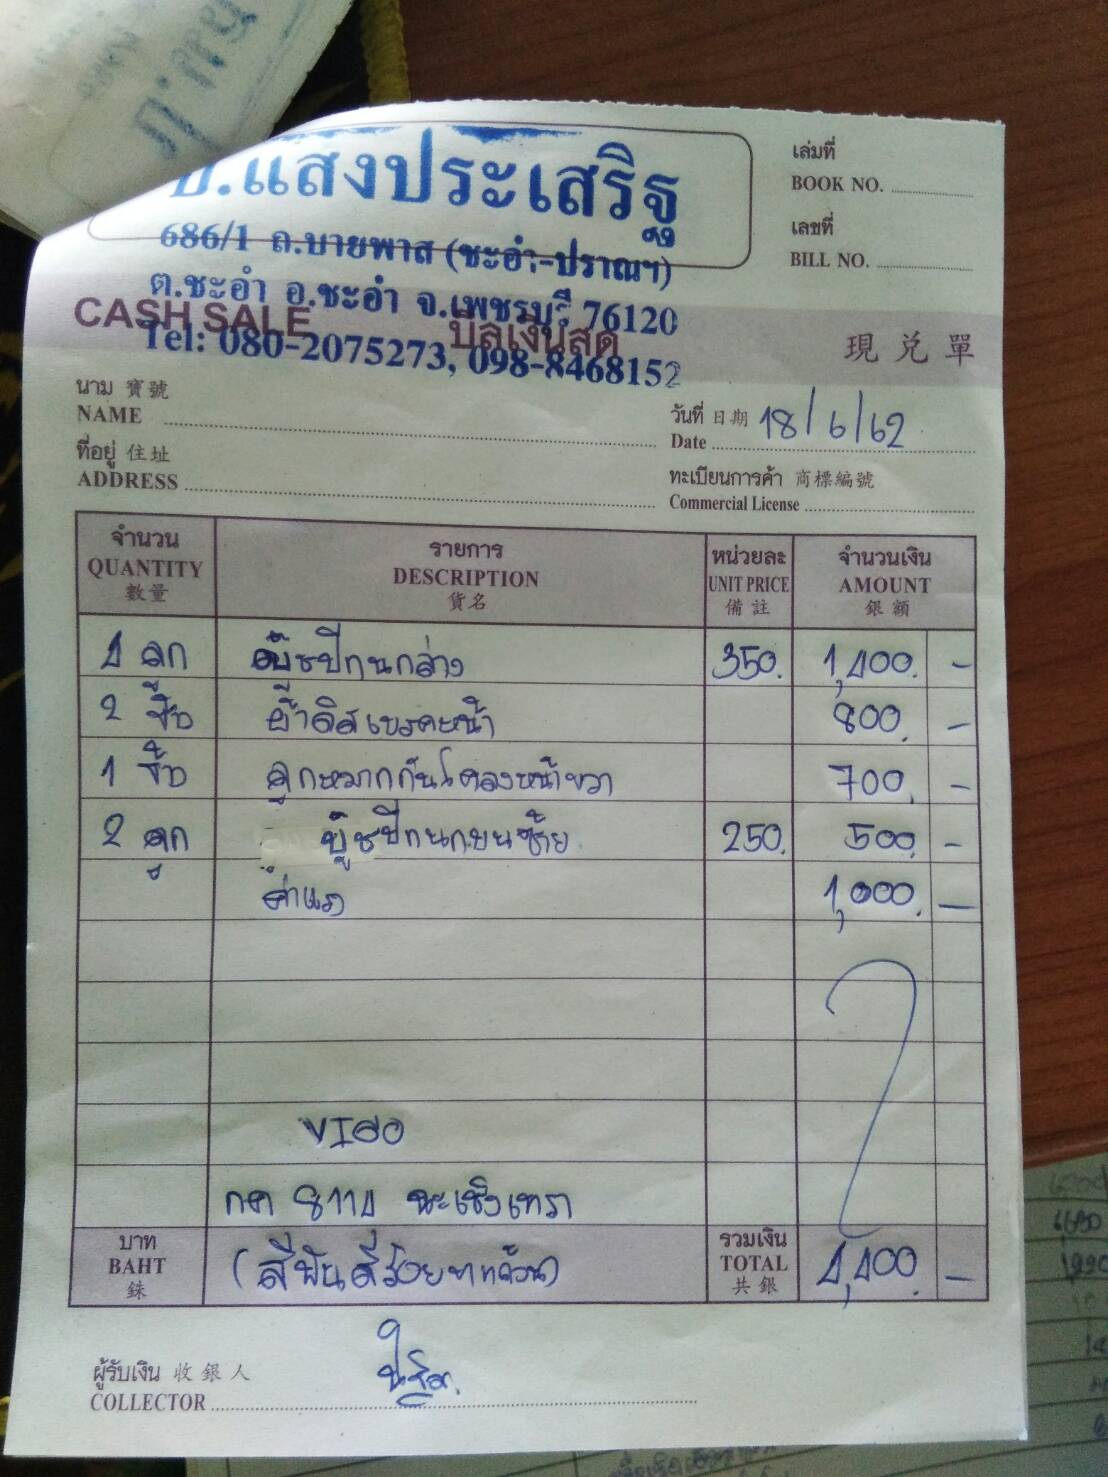 แสงประเสริฐ
686/1 ถ.บายพาส (ชะอำ-ปราณฯ)
ต.ชะอำ อ.ชะอำ จ.เพชรบุรี 76120
Tel: 080-2075273, 098-8468152
เล่มที่
BOOK NO.
เลขที่
BILL NO.
CASH SALE บิลเงินสด 現兌單
นาม 寶號
NAME
วันที่ 日期 18/6/62
Date
ที่อยู่ 住址
ADDRESS
ทะเบียนการค้า 商標編號
Commercial License
จำนวน รายการ หน่วยละ จำนวนเงิน
QUANTITY DESCRIPTION UNIT PRICE AMOUNT
數量 貨名 備註 銀額
4 ลูก บู๊ชปีกนกล่าง 350. 1,400. -
2 ชิ้น ผ้าดิสเบรคหน้า 800. -
1 ชิ้น ลูกหมากกันโคลงหน้าขวา 700. -
2 ลูก บู๊ชปีกนกบนซ้าย 250. 500. -
ค่าแรง 1,000. -
VIGO
กค 8114 ฉะเชิงเทรา
บาท รวมเงิน
BAHT (สี่พันสี่ร้อยบาทถ้วน) TOTAL 4,400. -
銖 共銀
ผู้รับเงิน 收銀人
COLLECTOR